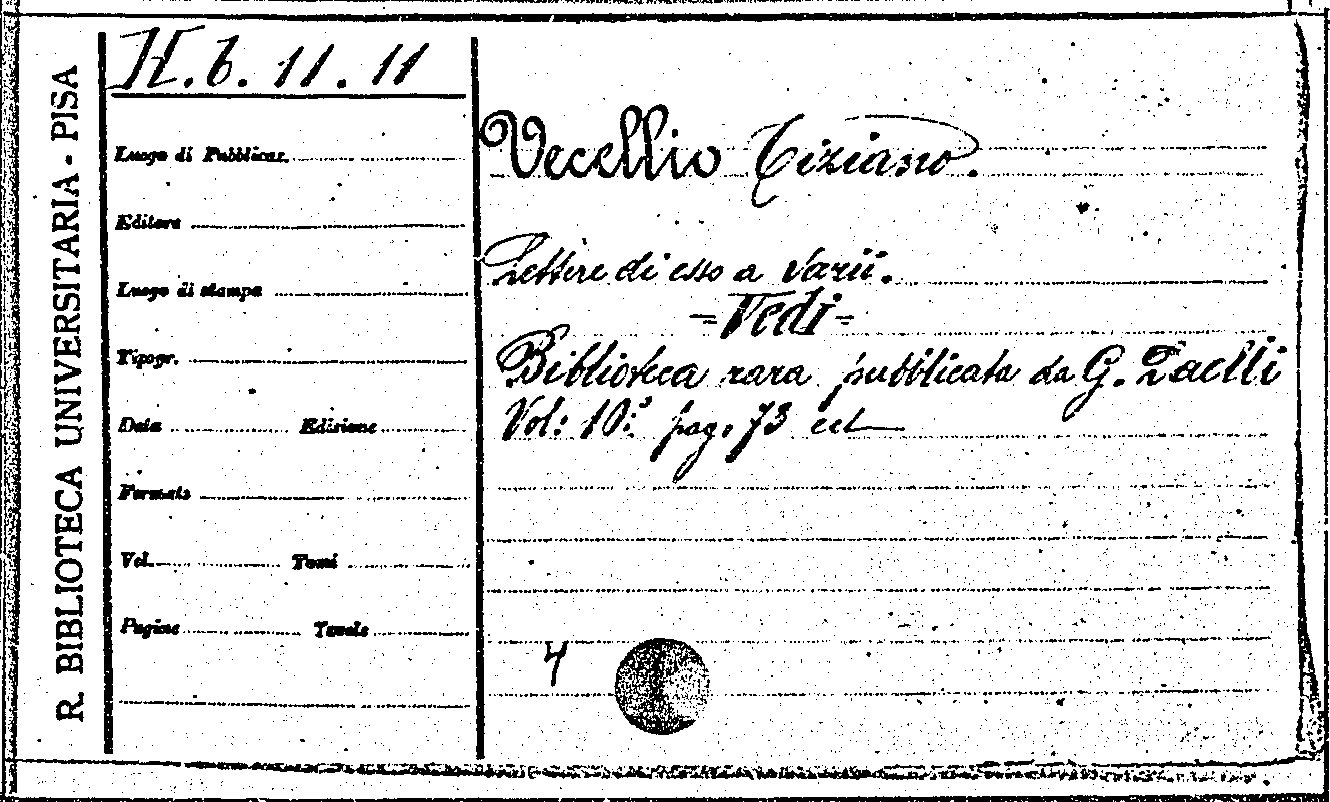 R. BIBLIOTECA UNIVERSITARIA - PISA
H. 6. 11. 11
Luogo di Pubblicaz.
Editore
Luogo di stampa
Tipogr.
Data Edizione
Formato
Vol. Tomi
Pagine Tavole
Vecellio Tiziano.
Lettere di esso a varii.
=Vedi=
Biblioteca rara pubblicata da G. Daelli
Vol: 10.° pag. 73 ect
4